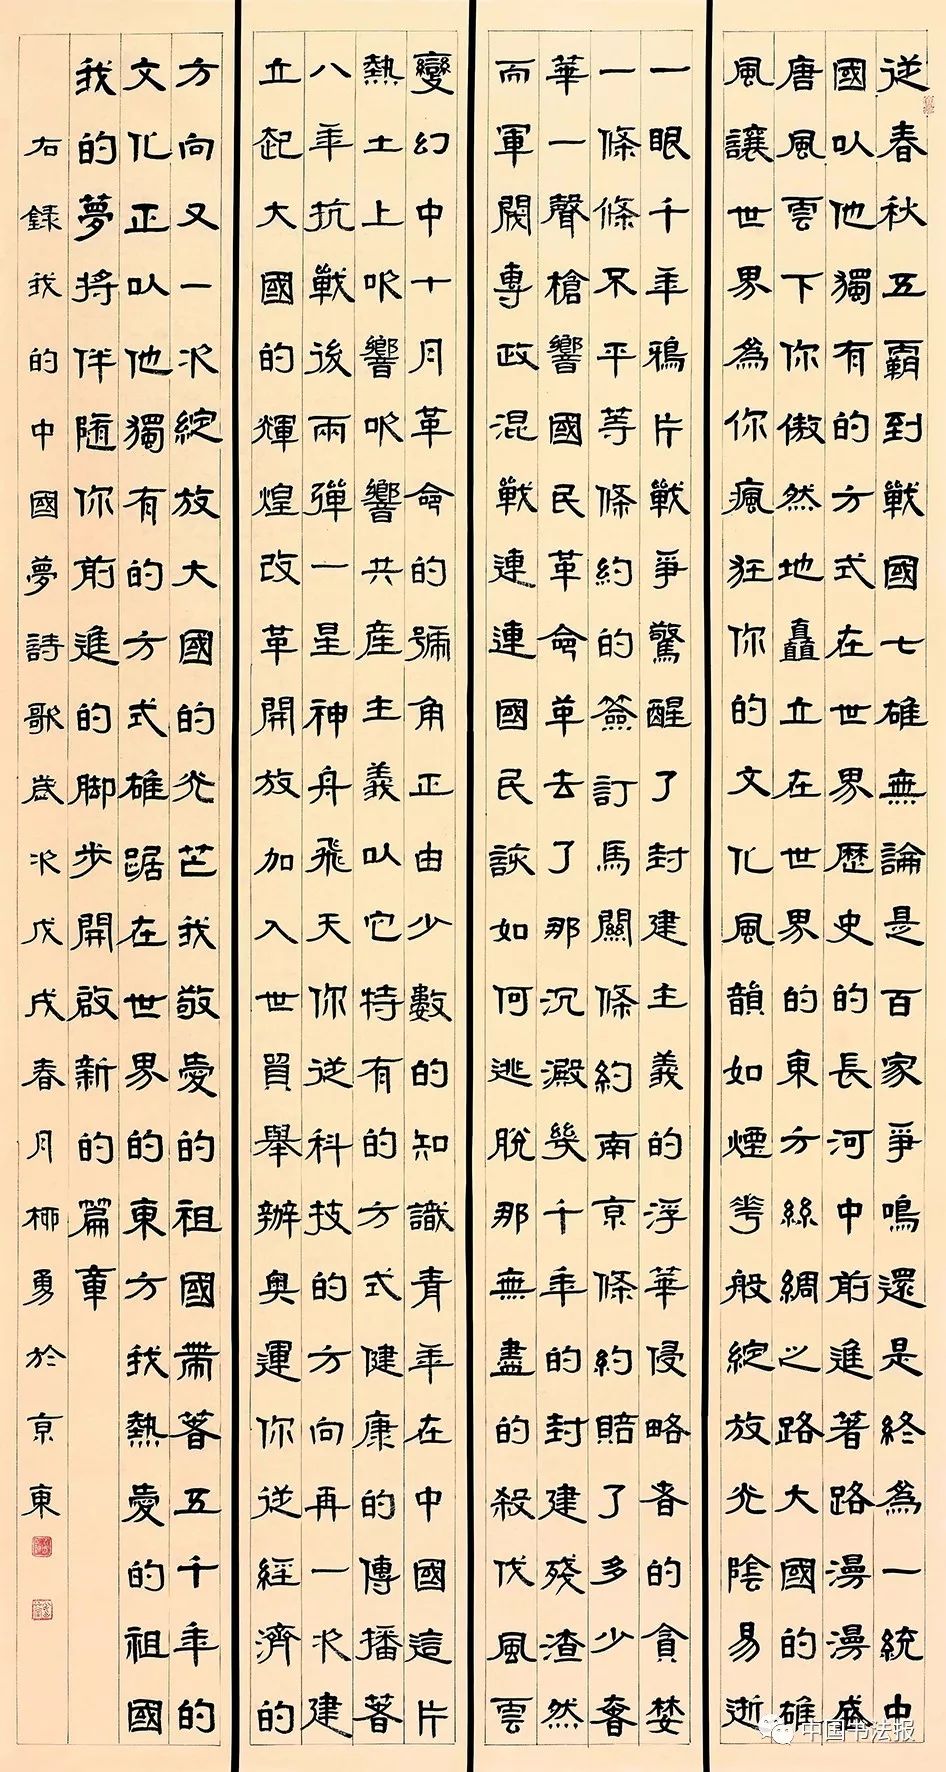 從春秋五霸到戰國七雄無論是百家爭鳴還是終為一統中
國以他獨有的方式在世界歷史的長河中前進著路漫漫盛
唐風雲下你傲然地矗立在世界的東方絲綢之路大國的雄
風讓世界為你瘋狂你的文化風韻如煙花般綻放光陰易逝
一眼千年鴉片戰爭驚醒了封建主義的浮華侵略者的貪婪
一條條不平等條約的簽訂馬關條約南京條約賠了多少奢
華一聲槍響國民革命革去了那沉澱幾千年的封建殘渣然
而軍閥專政混戰連連國民該如何逃脫那無盡的殺伐風雲
變幻中十月革命的號角正由少數的知識青年在中國這片
熱土上吹響吹響共產主義以它特有的方式健康的傳播著
八年抗戰後兩彈一星神舟飛天你從科技的方向再一次建
立起大國的輝煌改革開放加入世貿舉辦奧運你從經濟的
方向又一次綻放大國的光芒我敬愛的祖國帶著五千年的
文化正以他獨有的方式雄踞在世界的東方我熱愛的祖國
我的夢將伴隨你前進的脚步開啟新的篇章
右錄我的中國夢詩歌歲次戊戌春月柳勇於京東
中国书法报